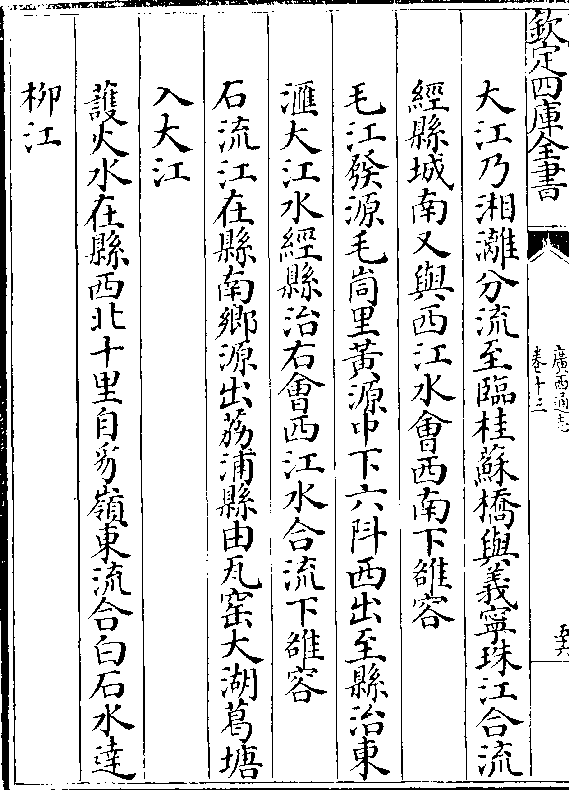 欽定四庫全書
廣西通志
卷十三
至六
大江乃湘灕分流至臨桂蘇橋與義寧珠江合流
經縣城南又與西江水會西南下雒容
毛江發源毛峝里黃源中下六㪷西出至縣治東
滙大江水經縣治右會西江水合流下雒容
石流江在縣南鄉源出荔浦縣由瓦窑大湖葛塘
入大江
護火水在縣西北十里自 嶺東流合白石水達
柳江